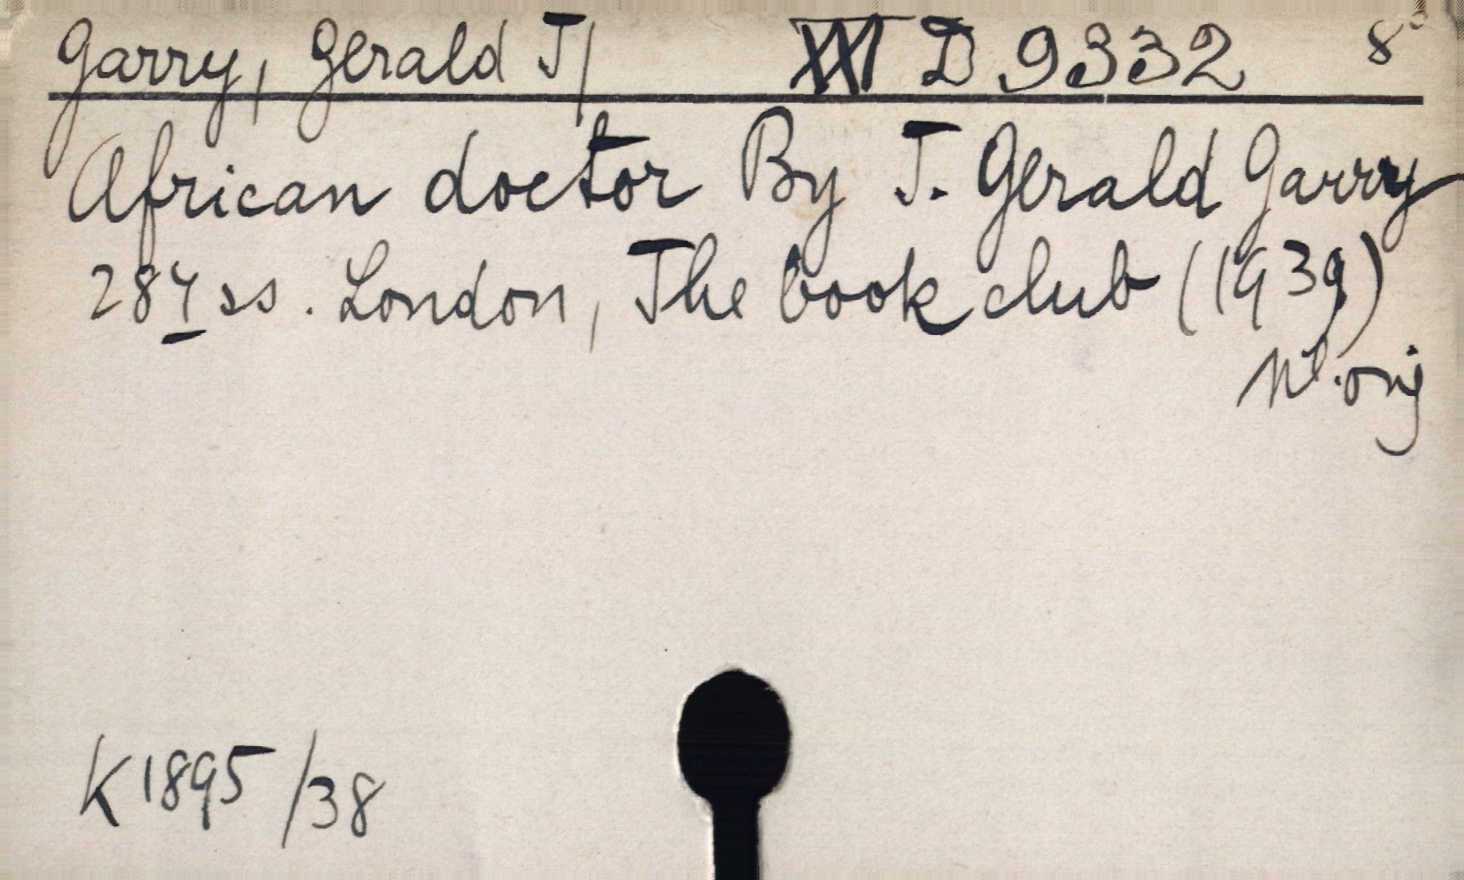 Garry, Gerald J/ XXI D 9332 8°
African doctor By J. Gerald Garry
287 ss. London, The book club (1939)
orig
K 1895 /38